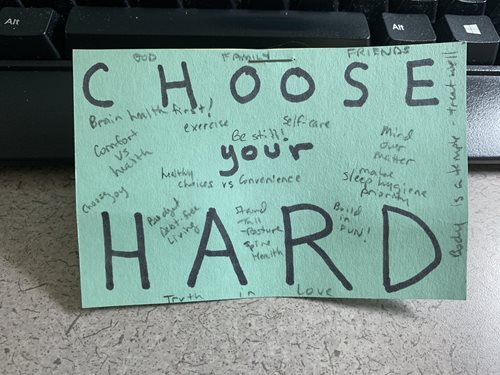 Alt
Alt
GOD FAMILY FRIENDS
CHOOSE
Brain health first!
exercise
Self-care
Comfort
vs
health
Be still!
your
Mind
over
matter
healthy
choices vs Convenience
make
Sleep hygiene
Priority
Choose
Joy
Budget
Debt-free
Living
Stand
Tall
-Posture
Spine
Health
Build
in
FUN!
HARD
Truth in Love
Body is a temple - treat well